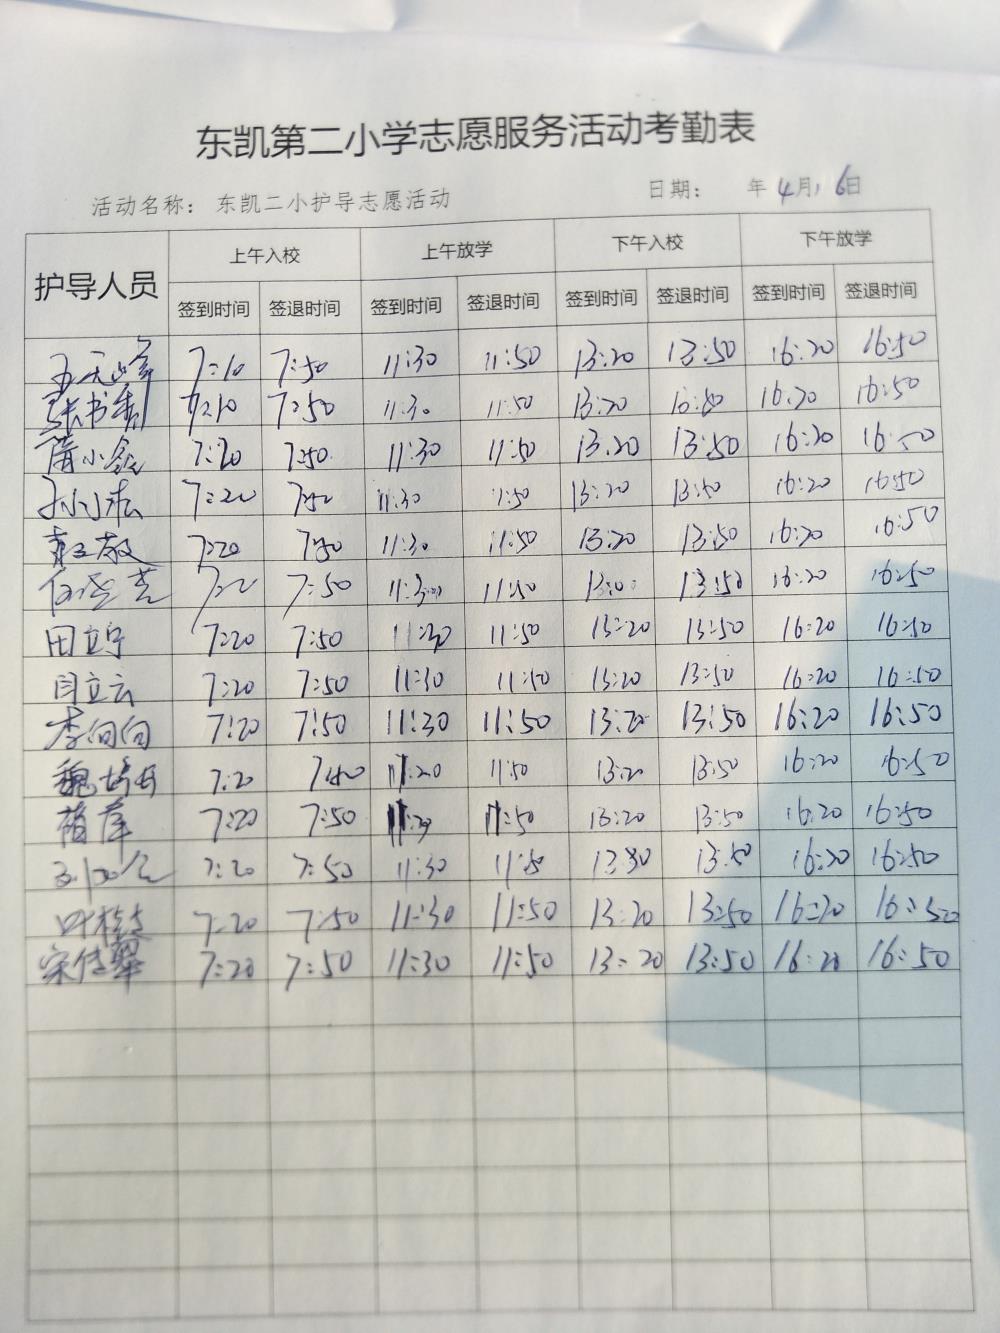 东凯第二小学志愿服务活动考勤表
活动名称： 东凯二小护导志愿活动 日期： 年 4月16日
护导人员 上午入校 上午放学 下午入校 下午放学
签到时间 签退时间 签到时间 签退时间 签到时间 签退时间 签到时间 签退时间
7:10 7:50 11:30 11:50 13:20 13:50 16:20 16:50
7:10 7:50 11:30 11:50 13:20 13:50 16:20 16:50
7:20 7:50 11:30 11:50 13:20 13:50 16:20 16:50
7:20 7:50 11:30 11:50 13:20 13:50 16:20 16:50
7:20 7:50 11:30 11:50 13:20 13:50 16:20 16:50
7:50 11:30 11:50 13:50 16:20 16:50
田立宁 7:20 7:50 11:30 11:50 13:20 13:50 16:20 16:50
闫立云 7:20 7:50 11:30 11:50 13:20 13:50 16:20 16:50
李向向 7:20 7:50 11:30 11:50 13:20 13:50 16:20 16:50
7:20 7:40 11:20 11:50 13:20 13:50 16:20 16:50
7:20 7:50 11:30 11:50 13:20 13:50 16:20 16:50
7:20 7:50 11:30 11:50 13:30 13:50 16:20 16:50
7:20 7:50 11:30 11:50 13:20 13:50 16:20 16:50
宋传翠 7:20 7:50 11:30 11:50 13:20 13:50 16:20 16:50